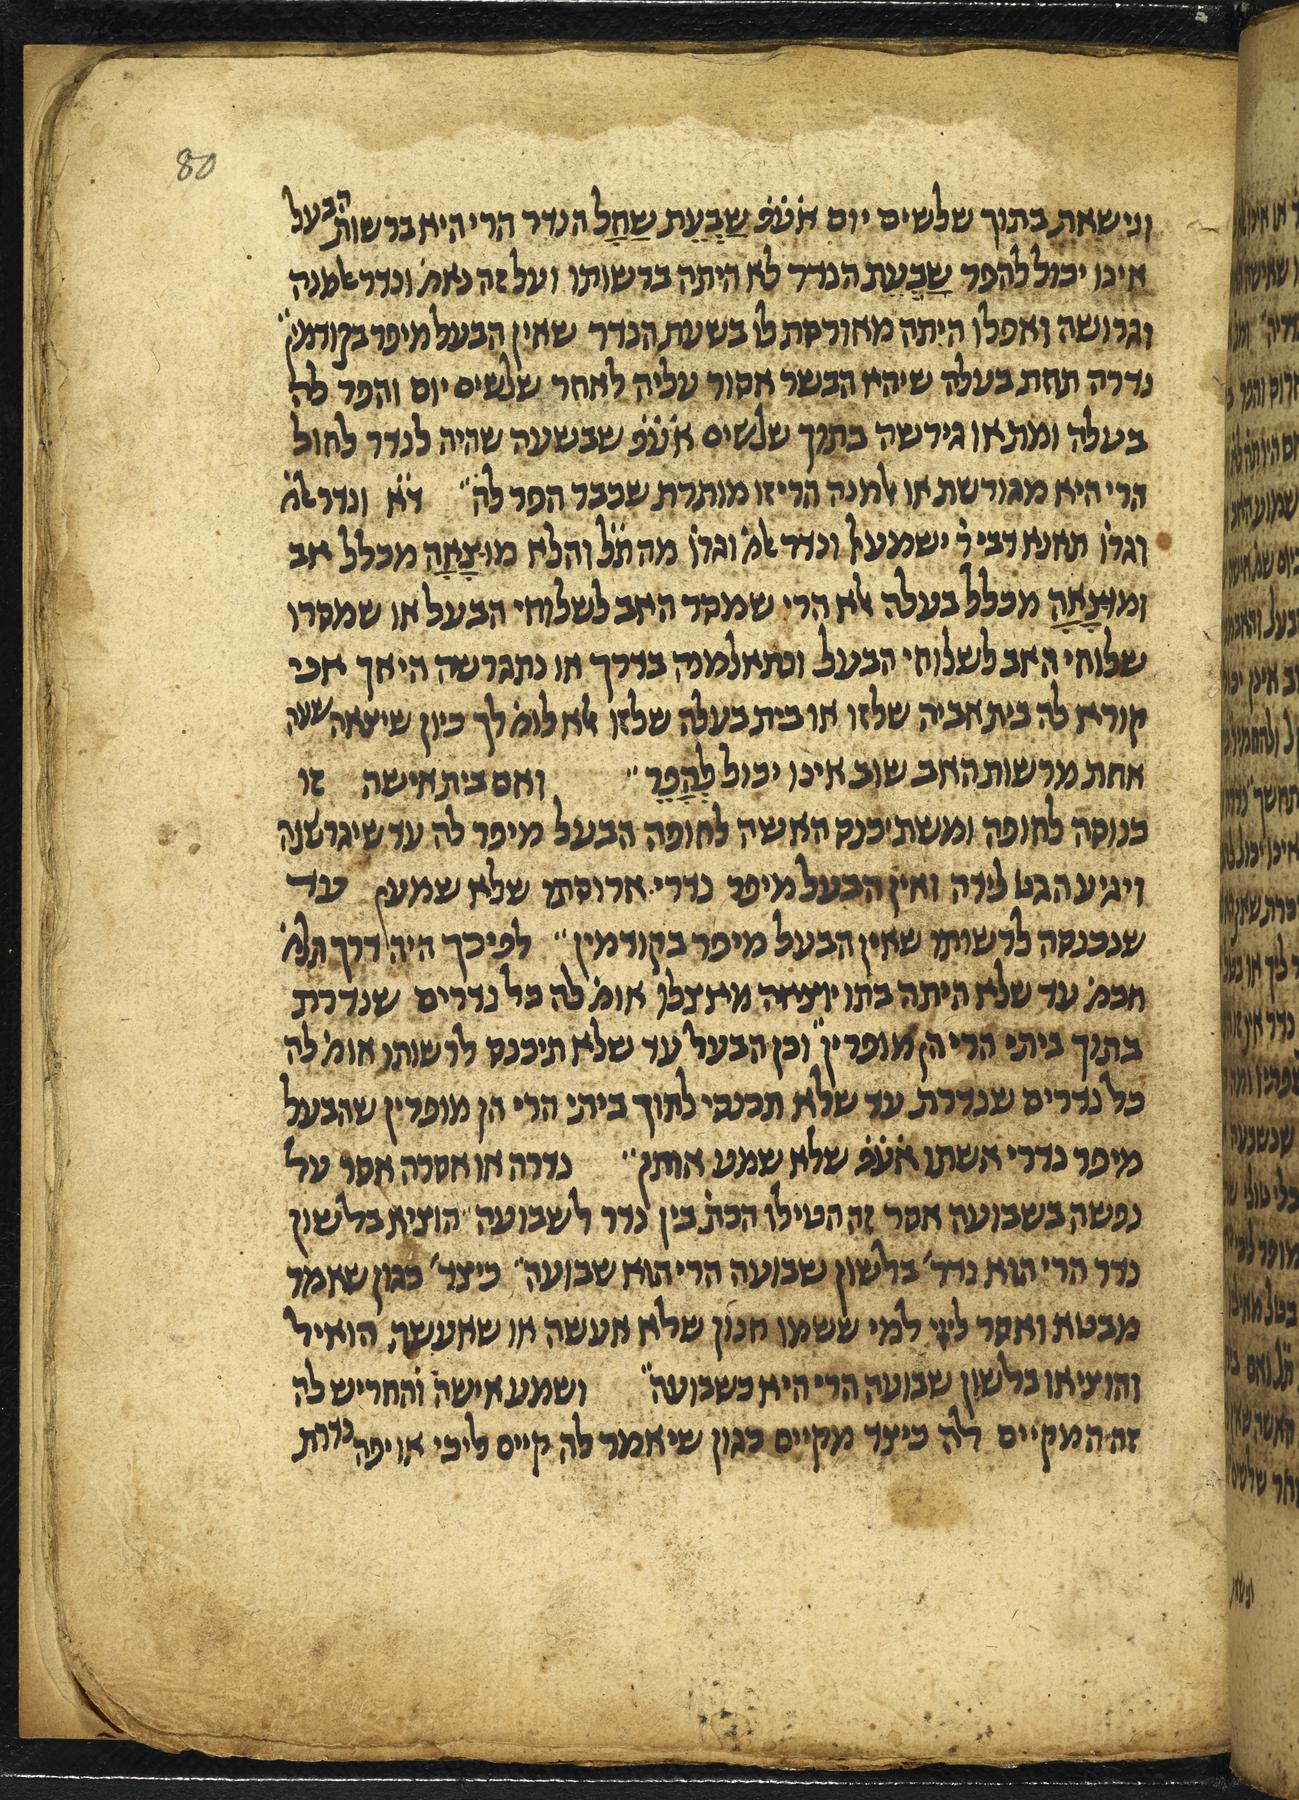 80
ונישאת בתוך שלשים יום אעפ שבעת שחל הנדר הרי היא ברשות הבעל
אינו יכול להפר שבעת הנדר לא היתה ברשותו ועל זה נאמ' ונדר אלמנה
וגרושה ואפלו היתה מאורסת לו בשעת הנדר שאין הבעל מיפר בקודמין"
נדרה תחת בעלה שיהא הבשר אסור עליה לאחר שלשים יום והפר לה
בעלה ומת או גירשה בתוך שלשים אעפ שבשעה שהיה לנדר לחול
הרי היא מגורשת או אלמנה הרי זו מותרת שכבר הפר לה" ד'א' ונדר אלמ'
וגרו' תאנא דבי ר' ישמעאל ונדר אלמ' וגרו' מה ת'ל והלא מוצאה מכלל אב
ומוצאה מכלל בעלה אלא הרי שמסר האב לשלוחי הבעל או שמסרו
שלוחי האב לשלוחי הבעל ונתאלמנה בדרך או נתגרשה היאך אני
קורא לה בית אביה שלזו או בית בעלה שלזו אלא לומ' לך כיון שיצאה שעה
אחת מרשות האב שוב אינו יכול להפר" ואם בית אישה זו
כנוסה לחופה ומשתיכנס האשה לחופה הבעל מיפר לה עד שיגרשנה
ויגיע הגט לידה ואין הבעל מיפר נדרי ארוסתו שלא שמען עד
שנכנסה לרשותו שאין הבעל מיפר בקודמין" לפיכך היה דרך תלמ'
חכמ' עד שלא היתה בתו יוצאה מאצלו אומ' לה כל נדרים שנדרת
בתוך ביתי הרי הן מופרין" וכן הבעל עד שלא תיכנס לרשותו אומ' לה
כל נדרים שנדרת עד שלא תכנסי לתוך ביתי הרי הן מופרין שהבעל
מיפר נדרי אשתו אעפ שלא שמע אותן" נדרה או אסרה אסר על
נפשה בשבועה אסר זה הטילו הכת' בין נדר לשבועה" הוציא בלשון
נדר הרי הוא נדר' בלשון שבועה הרי הוא שבועה" כיצד' כגון שאמר
מבטא ואסר לייי למי ששמו חנון שלא אעשה או שאעשה הואיל
והוציאו בלשון שבועה הרי היא כשבועה" ושמע אישה והחריש לה
זה המקיים לה כיצד מקיים כגון שיאמר לה קיים ליכי או יפה נדרת